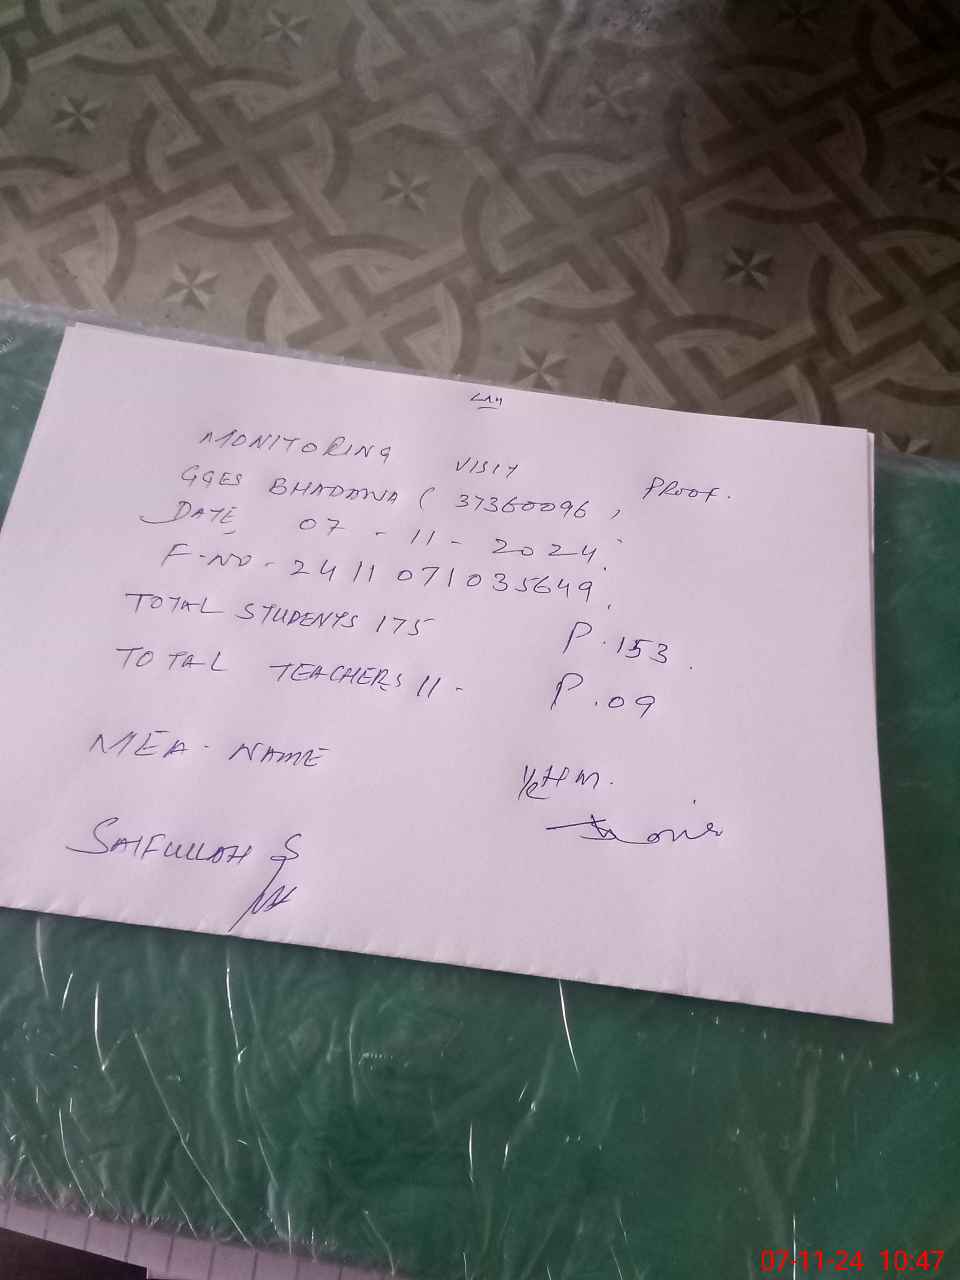 MONITORING VISIT PROOF.
GGES BHADANA ( 37360096 ,
DATE 07 - 11 - 2024.
F-NO - 2411071035649.
TOTAL STUDENTS 175 P. 153.
TOTAL TEACHERS 11 - P. 09
MEA - NAME
I/C H M.
SAIFULLAH S
07-11-24 10:47